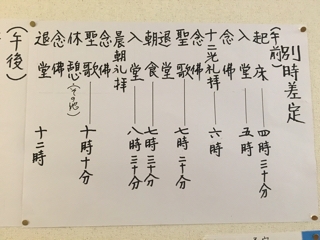 別時差定
(午前)
起床 四時三十分
入堂 五時
念佛
十二光礼拝 六時
念佛
聖歌 七時二十分
退堂
朝食 七時三十分
入堂 八時三十分
晨朝礼拝
念佛
聖歌 十時十分
休憩
念佛
退堂 十二時
(午後)